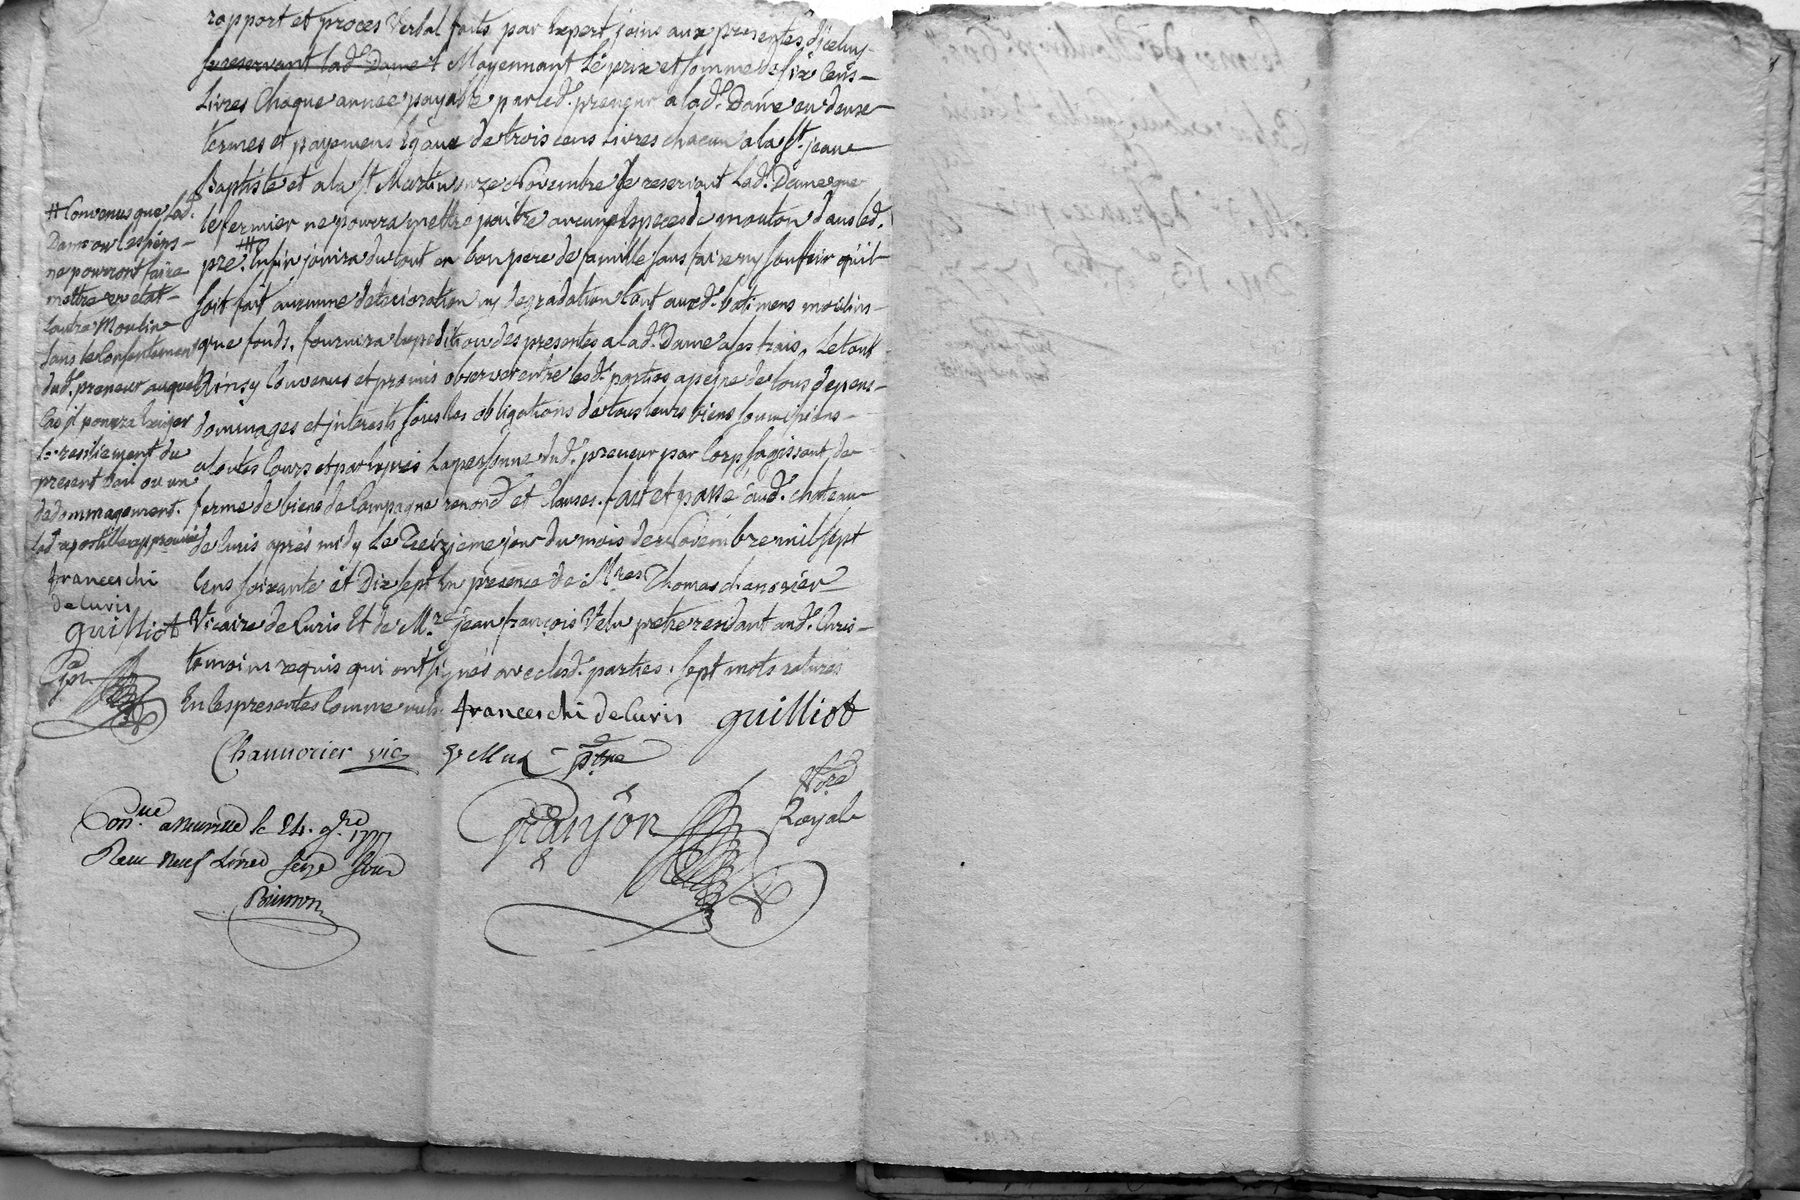 rapport et proces verbal faits par lexpert joins aux presentes djceluy
se reservant lad.e Dame Moyennant Le prix et somme de six Cens
Livres Chaque année payable par led. preneur a lad.e Dame en deux
termes et payemens Egaux de trois cens Livres chacun a la St. jean
Baptiste et a la St Martin onze Novembre se reservant Lad.e Dame que
le fermier ne pourra mettre paitre aucune Especes de mouton dans led.
pre. # Enfin jouira du tout en bon pere de famille sans faire ny souffrir qu'il
soit fait aucunne deterioration ny degradation tant auxd. batimens moulins
que fonds, fournira Expedition des presentes a lad.e Dame a ses frais. Le tout
Ainsy Convenus et promis observer entre lesd. parties a peine de tous depens
dommages et jnterests sous les obligations de tous leurs biens soumissions
a toutes Cours et par Exprés La personne dud. preneur par Corps s'agissant de
ferme de biens de Campagne renond. et Clauses. fait et passé aud. chateau
de Curis aprés midy Le Treizieme jour du mois de Novembre mil sept
Cens soixante et Dix sept En presence de Mres. Thomas chanorier
Vicaire de Curis Et de Mre jean françois Velu pretre residant aud. Curis
temoins requis qui ont signés avec lesd. parties. sept mots raturés
En les presentes Comme nuls
# Convenus que Lad.e
Dame ou les siens
ne pourront faire
mettre en etat
Lautre Moulin
sans le Consentement
dud. preneur auquel
Cas jl pourra Exiger
Le resiliement du
present bail ou un
dedommagement.
lad. apostille approuvée
franceschi
de Curis
guilliot
franceschi de Curis guilliot
Chanorier vic Vellu ptre
Granjon Nore Royal
Con.lle a Neuville le 24. 9bre 1777
Recu Neuf Livres seize sous
Brimon